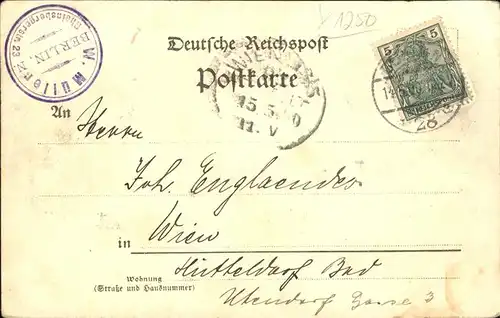 √ 1250
W. Müller
BERLIN.
Rheinsbergerstr. 23
Deutsche Reichspost
Postkarte
5
5
14
28
15. 5. 0
11. V
An
Herrn
Joh. Englaender
in Wien
Hütteldorf Bad
Wohnung
(Straße und Hausnummer)
Utendorf Gasse 3